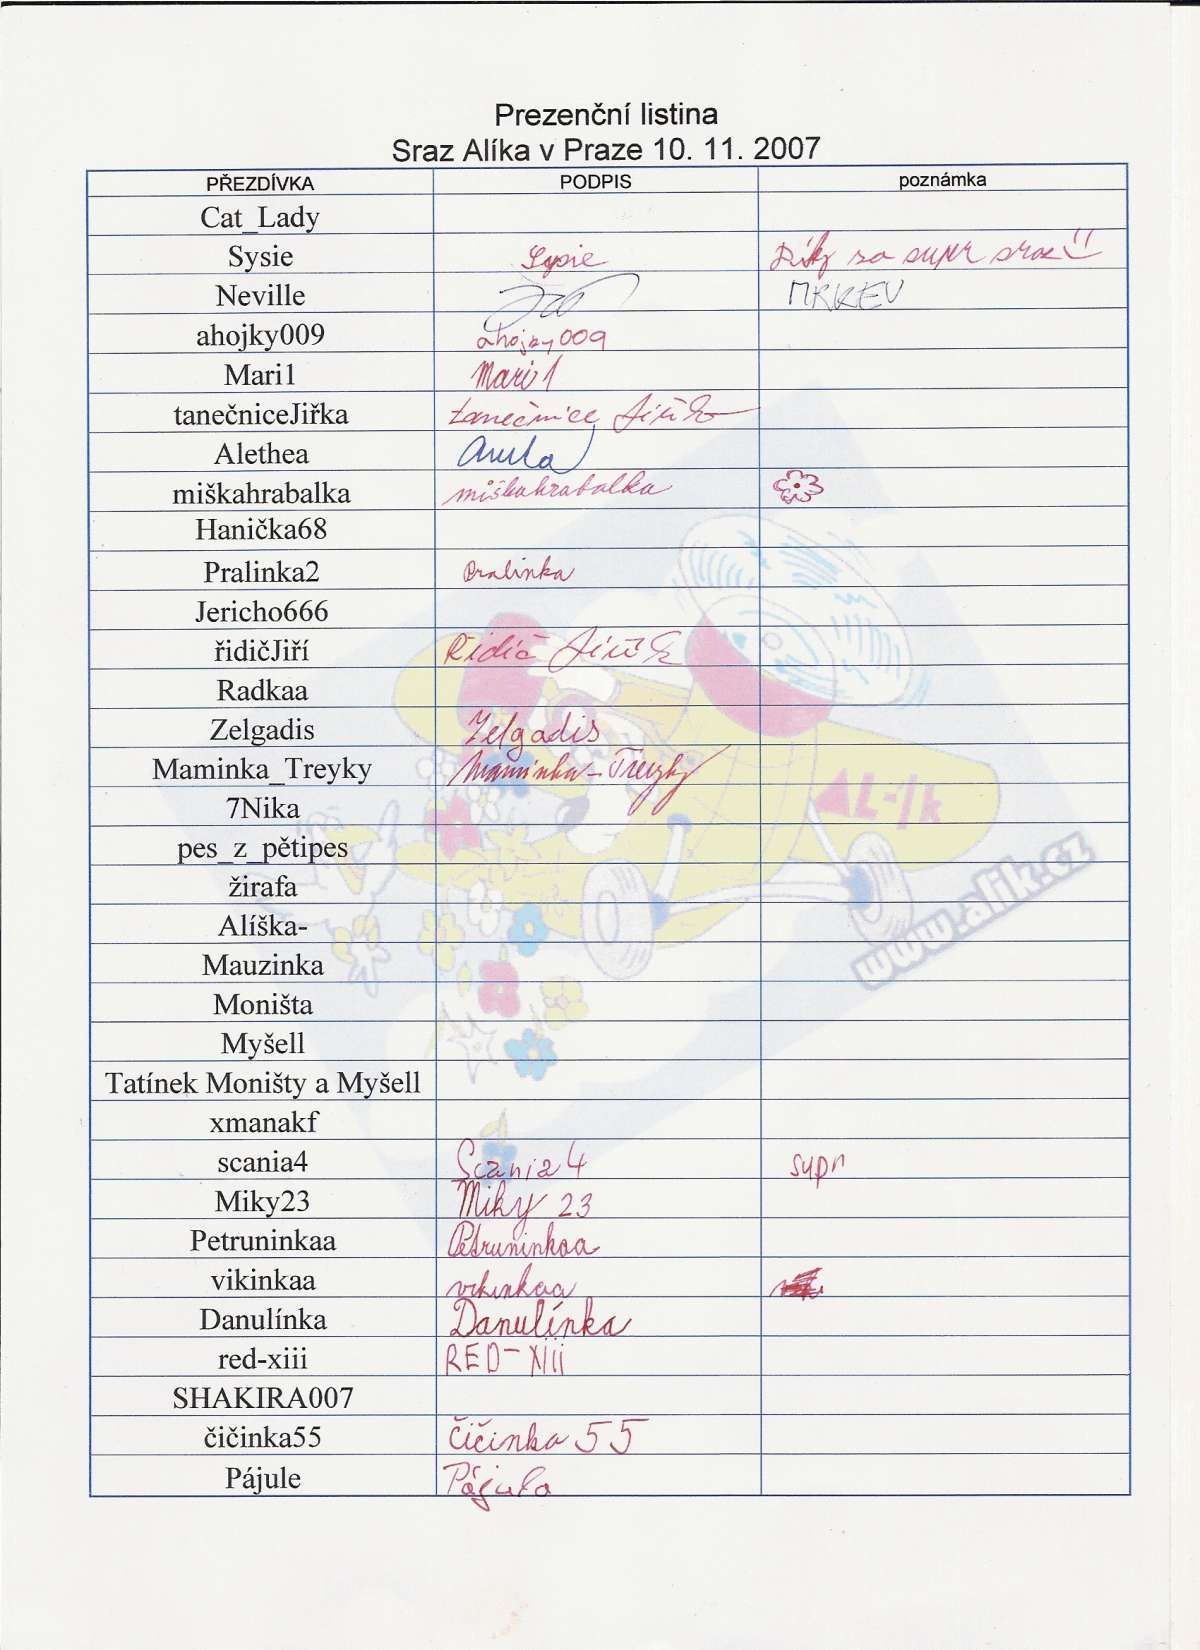 Prezenční listina
Sraz Alíka v Praze 10. 11. 2007
PŘEZDÍVKA PODPIS poznámka
Cat_Lady
Sysie Sysie Díky za super sraz!!
Neville MRKEV
ahojky009 ahojky009
Mari1 Mari1
tanečniceJiřka tanečnice Jiřka
Alethea
miškahrabalka miškahrabalka
Hanička68
Pralinka2 Pralinka
Jericho666
řidičJiří Řidič Jiří
Radkaa
Zelgadis Zelgadis
Maminka_Treyky Maminka_Treyky
7Nika
pes_z_pětipes
žirafa
Alíška-
Mauzinka
Moništa
Myšell
Tatínek Moništy a Myšell
xmanakf
scania4 Scania4 supr
Miky23 Miky 23
Petruninkaa Petruninkaa
vikinkaa vikinkaa
Danulínka Danulínka
red-xiii RED-XIII
SHAKIRA007
čičinka55 Čičinka 55
Pájule Pájula
AL-Ik
www.alik.cz